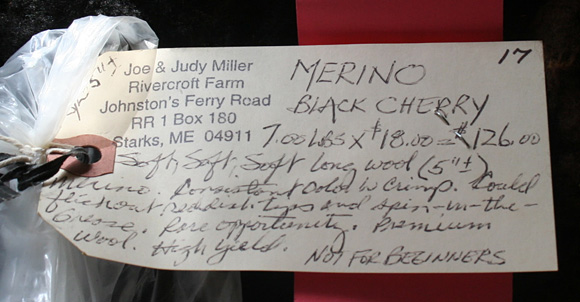 17
Joe & Judy Miller
Rivercroft Farm
Johnston's Ferry Road
RR 1 Box 180
Starks, ME 04911
MERINO
BLACK CHERRY
7.00 LBS X $18.00 = $126.00
Soft, Soft, Soft long wool (5"±)
Merino. Consistent Color & Crimp. Could
flick out reddish tips and spin-in-the-
Grease. Rare opportunity. Premium
Wool. High Yield. NOT FOR BEGINNERS